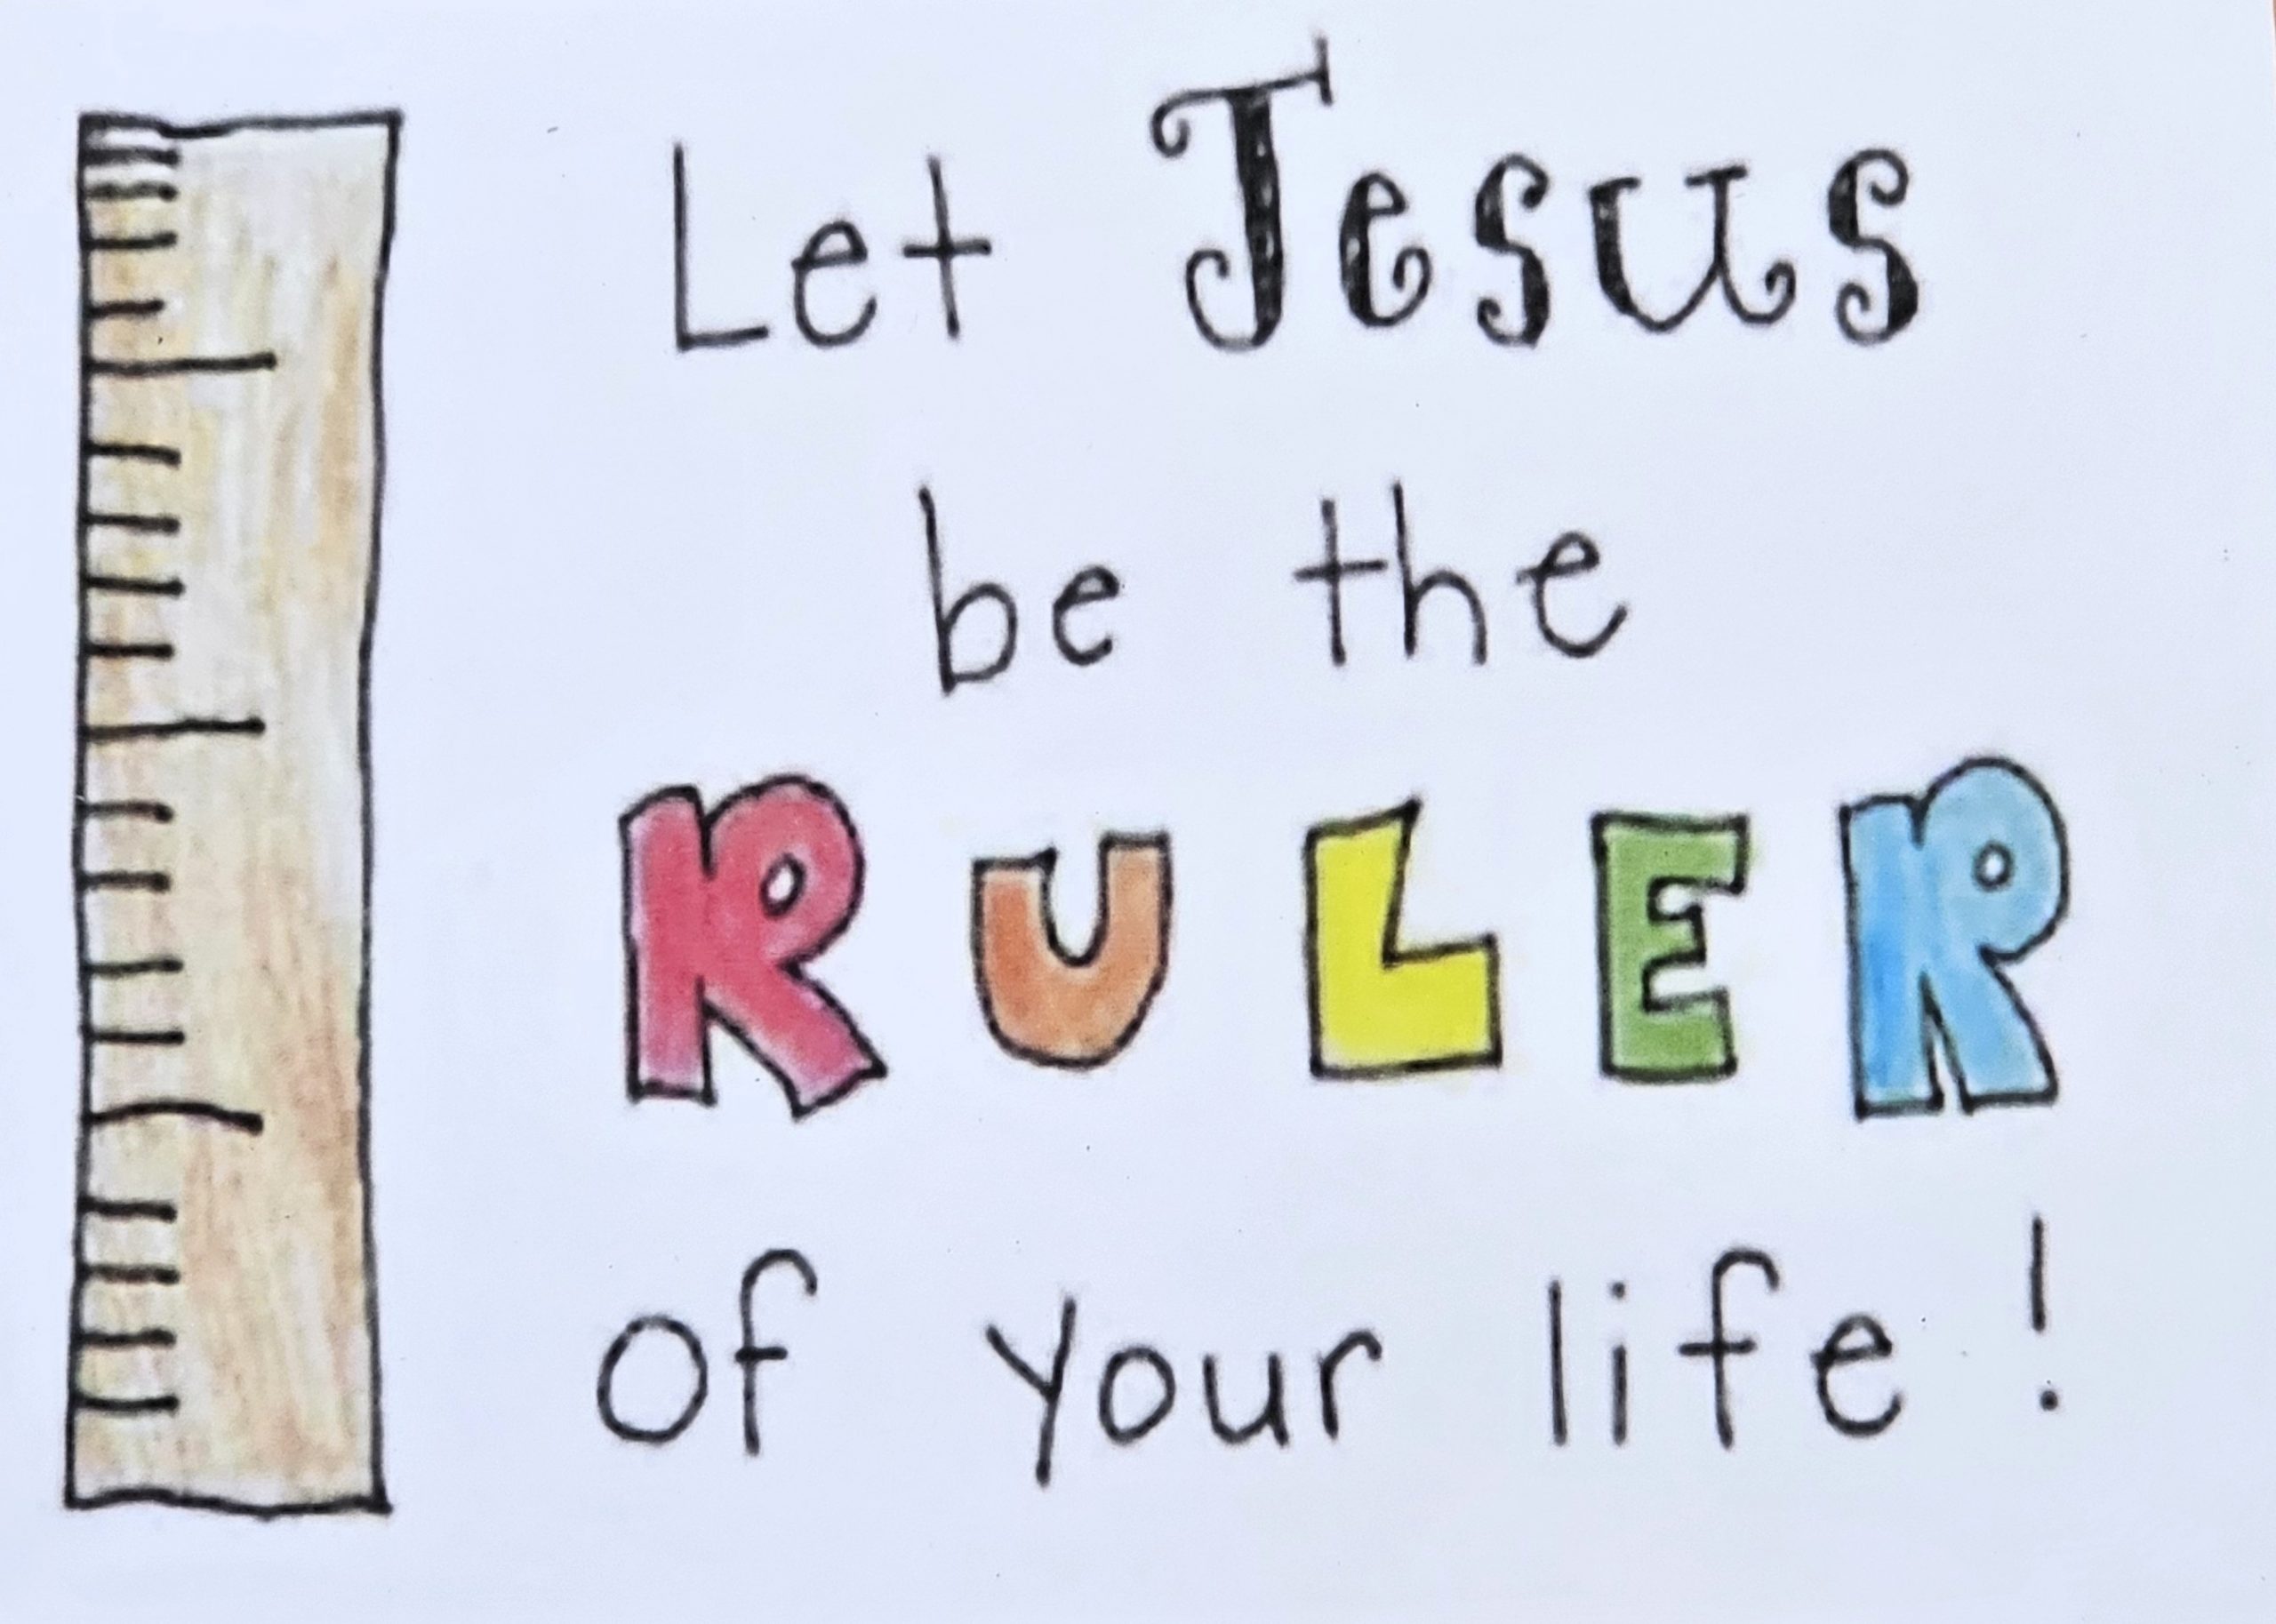 Let Jesus
be the
RULER
of your life!